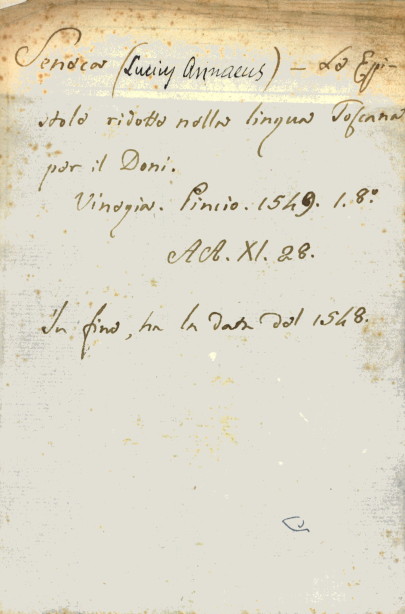 Seneca (Lucius Annaeus) - Le Epi-
stole ridotte nella lingua Toscana
per il Doni.
Vinegia. Pincio. 1549. 1. 8.º
AA. XI. 28.
In fine, ha la data del 1548.